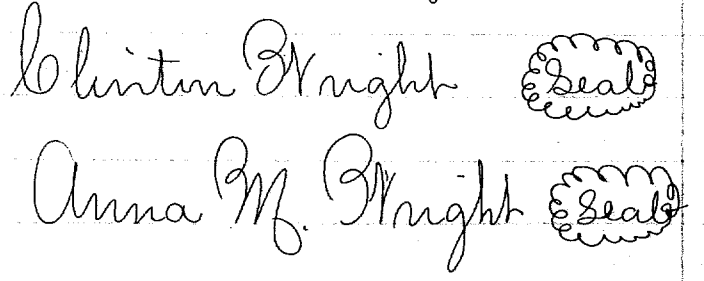 Clinton Wright Seal
Anna M. Wright Seal